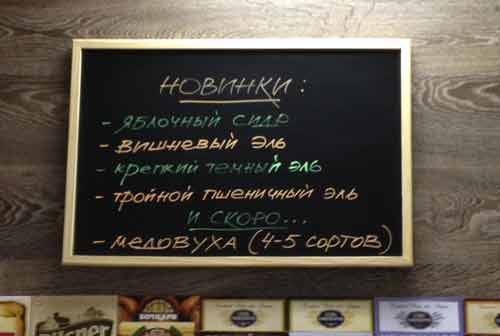 НОВИНКИ:
- ЯБЛОЧНЫЙ СИДР
- ВИШНЕВЫЙ ЭЛЬ
- КРЕПКИЙ ТЕМНЫЙ ЭЛЬ
- ТРОЙНОЙ ПШЕНИЧНЫЙ ЭЛЬ
И СКОРО...
- МЕДОВУХА (4-5 СОРТОВ)